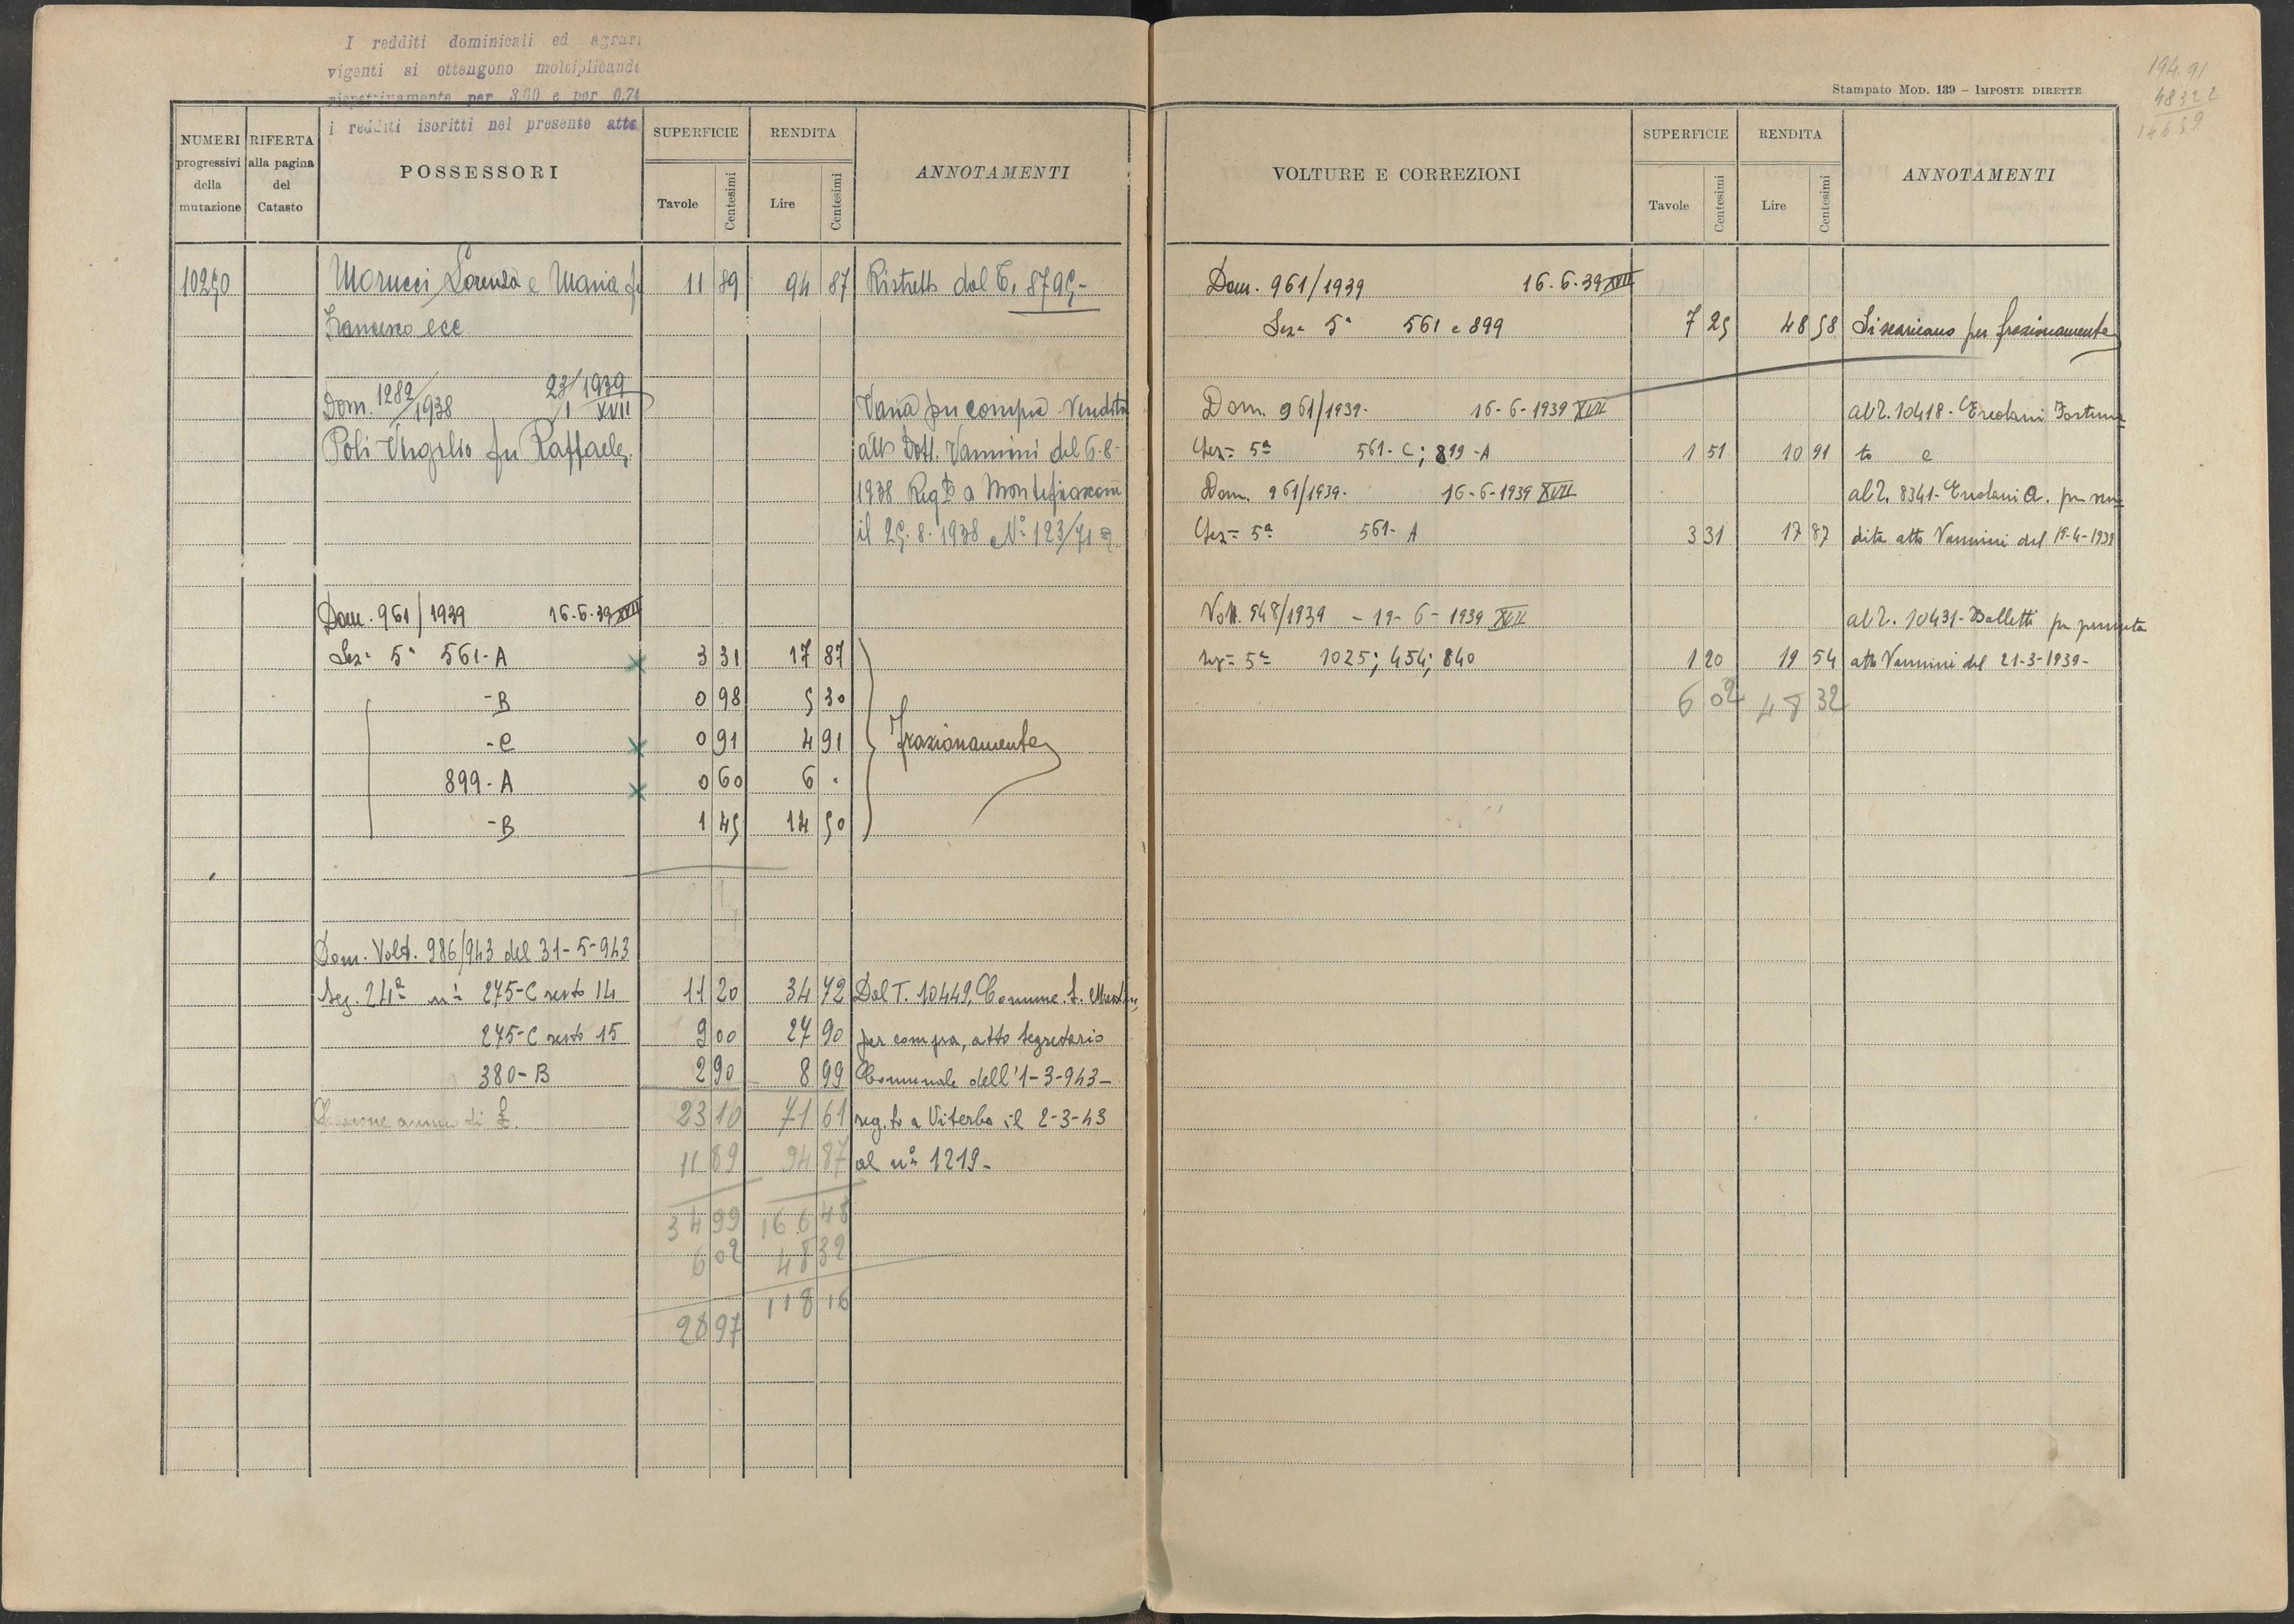 I redditi dominicali ed agrari
vigenti si ottengono moltiplicando
rispettivamente per 3,60 e per 0,74
i redditi iscritti nel presente atto
NUMERI progressivi della mutazione
RIFERTA alla pagina del Catasto
POSSESSORI
SUPERFICIE
Tavole Centesimi
RENDITA
Lire Centesimi
ANNOTAMENTI
10250 Morucci Lorenza e Maria fu 11 89 94 87 Ristretto dal T. 8795-
Francesco ecc
Dom. 1282/1938 23/1 1939 XVII Varia per compra vendita
Poli Virgilio fu Raffaele atto Dott. Vannini del 6-8-
1938 Reg to a Montefiascone
il 25.8.1938 N° 123/71
Dom. 961/1939 16.6.39 XVII
Sez= 5ª 561-A 3 31 17 87
-B 0 98 5 30
-C 0 91 4 91 Frazionamento
899-A 0 60 6 -
-B 1 45 14 50
Dom. Volt. 986/943 del 31-5-943
Sez. 24ª n° 275-C resto 14 11 20 34 72 Dal T. 10449, Comune
275-C resto 15 9 00 27 90 per compra, atto Segretario
380-B 2 90 8 99 Comunale dell'1-3-943-
annuo di £. 23 10 71 61 reg.to a Viterbo il 2-3-43
11 89 94 87 al n° 1219-
34 99 166 48
6 02 48 32
118 16
28 97
Stampato Mod. 139 – Imposte dirette
194.91
48322
14659
VOLTURE E CORREZIONI
SUPERFICIE
Tavole Centesimi
RENDITA
Lire Centesimi
ANNOTAMENTI
Dom. 961/1939 16.6.39 XVII
Sez= 5ª 561 e 899 7 25 48 58 Si scaricano per frazionamento
Dom. 961/1939- 16-6-1939 XVII al T. 10418- Ercolani Fortuna
Sez= 5ª 561-C; 899-A 1 51 10 91 to e
Dom. 961/1939- 16-6-1939 XVII al T. 8341- Ercolani A. per ven
Sez= 5ª 561-A 3 31 17 87 dita atto Vannini del 19-4-1939
Volt. 948/1939 - 19-6-1939 XVII al T. 10431- Balletti per permuta
sez= 5ª 1025; 454; 840 1 20 19 54 atto Vannini del 21-3-1939-
6 02 48 32